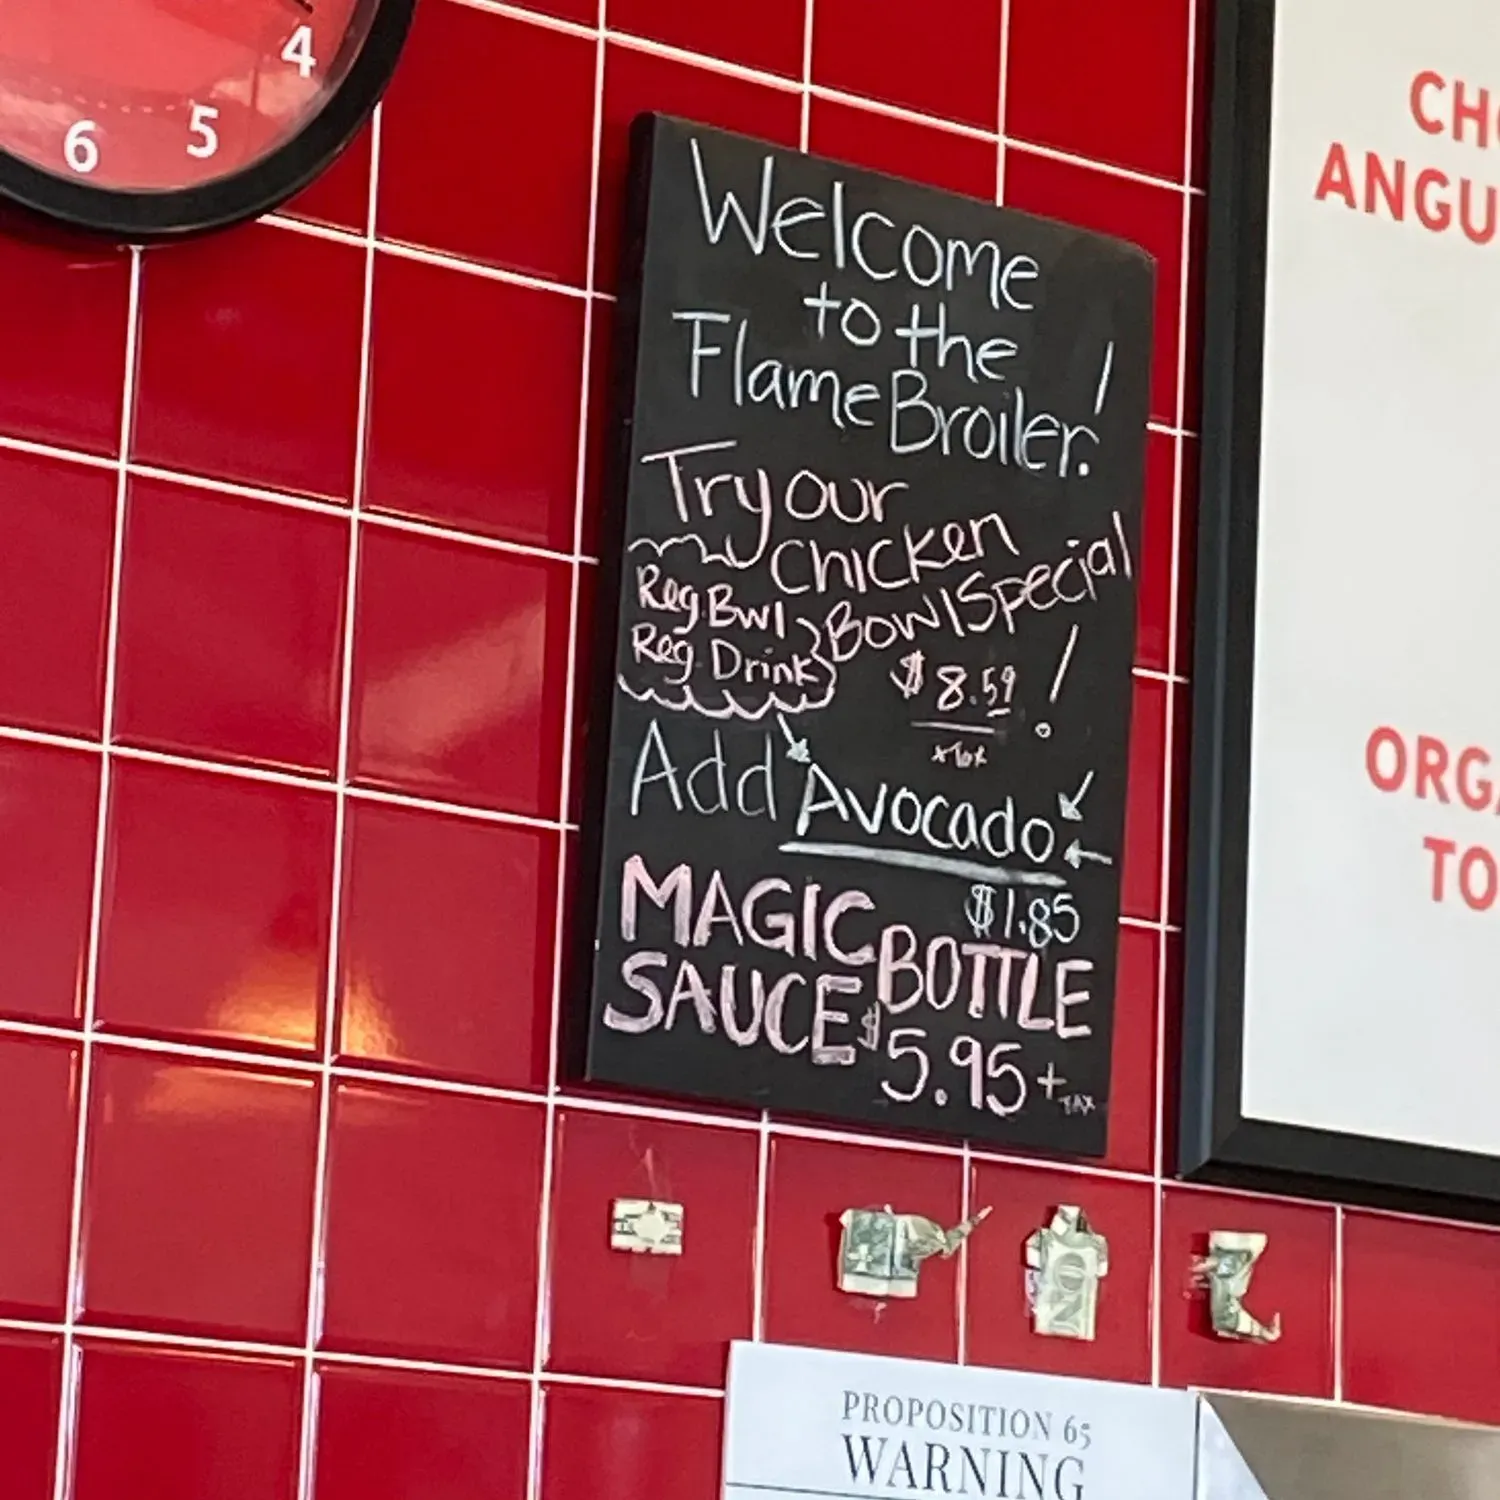 4
5
6
Welcome
to the
Flame Broiler!
Try our
Chicken
Bowl Special
Reg. Bwl
Reg. Drink
$8.59!
+Tax
Add Avocado
$1.85
MAGIC BOTTLE
SAUCE $5.95 +
TAX
CH
ANGU
ORGA
TO
ON
PROPOSITION 65
WARNING